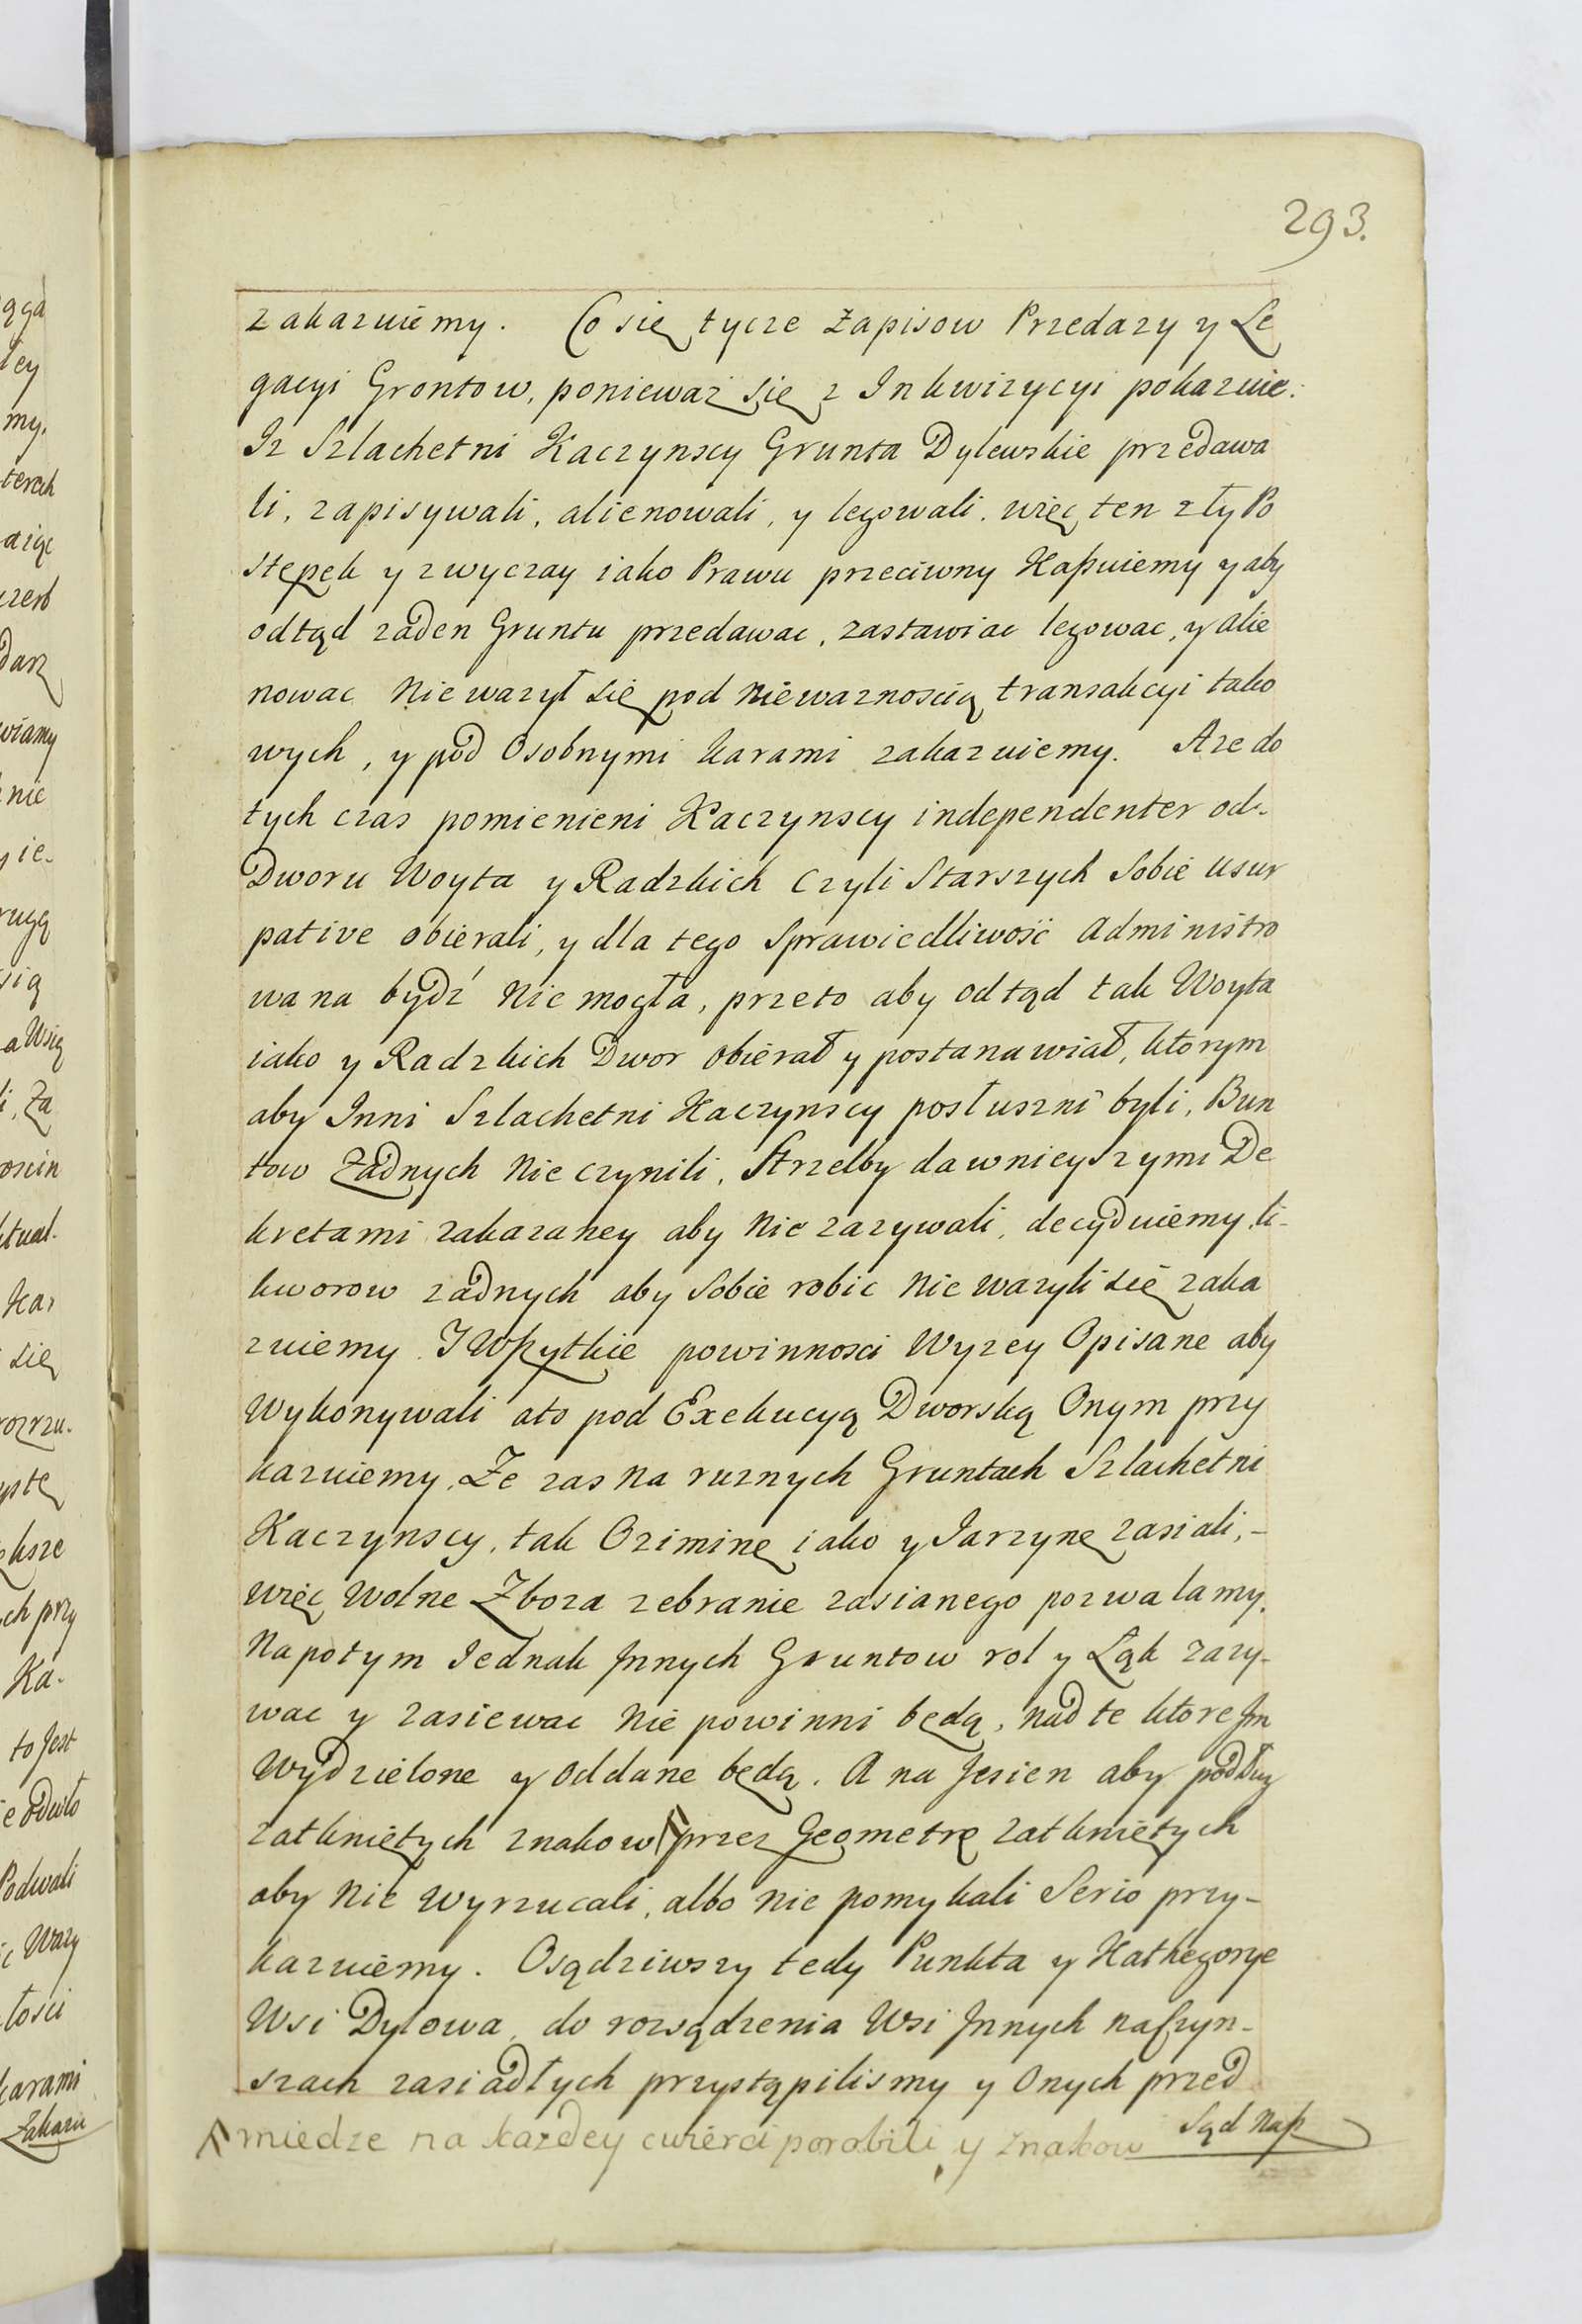 293.
zakazuiemy. Co się tycze Zapisow Przedazy y Le
gacyi Grontow, ponieważ się z Inkwizycyi pokazuie:
Iz Szlachetni Kaczynscy Grunta Dylewskie przedawa
li, zapisywali, alienowali, y legowali, więc ten zły Po
stępek y zwyczay iako Prawu przeciwny Kaßuiemy y aby
odtąd zaden Gruntu przedawac, zastawiac legowac, y alie
nowac nie wazył się pod niewaznoscią transakcyi tako
wych, y pod Osobnymi karami zakazuiemy. Aze do
tych czas pomienieni Kaczynscy independenter od-
Dworu Woyta y Radzkich czyli Starszych sobie usur
pative obierali, y dla tego Sprawiedliwość administro
wana bydź nie mogła, przeto aby odtąd tak Woyta
iako y Radzkich Dwor obierał y postanawiał, ktorym
aby Inni Szlachetni Kaczynscy posłuszni byli, Bun
tow Żadnych nie czynili, Strzelby dawnieyszymi De
kretami zakazaney aby nie zazywali, decyduiemy, li-
kworow zadnych aby sobie robic nie wazyli się zaka
zuiemy. I Wßytkie powinnosci Wyzey Opisane aby
Wykonywali ato pod Exekucyą Dworską Onym przy
kazuiemy. Ze zas na ruznych Gruntach Szlachetni
Kaczynscy, tak Oziminę iako y Jarzynę zasiali,-
więc wolne Zboza zebranie zasianego pozwalamy.
Napotym Iednak Innych Gruntow rol y Ląk zazy-
wac y zasiewac nie powinni będą, nad te ktore Im
Wydzielone y oddane będą. A na Jesien aby podług
zatkniętych znakow ^ przez Geometrę zatkniętych
aby nie wyrzucali, albo nie pomykali Serio przy-
kazuiemy. Osądziwszy tedy Punkta y Kathegorye
Wsi Dylowa, do rozsądzenia Wsi Innych na Czyn-
szach zasiadłych przystąpilismy y Onych przed
^ miedze na kazdey cwierci porobili, y znakow
Sąd Naß